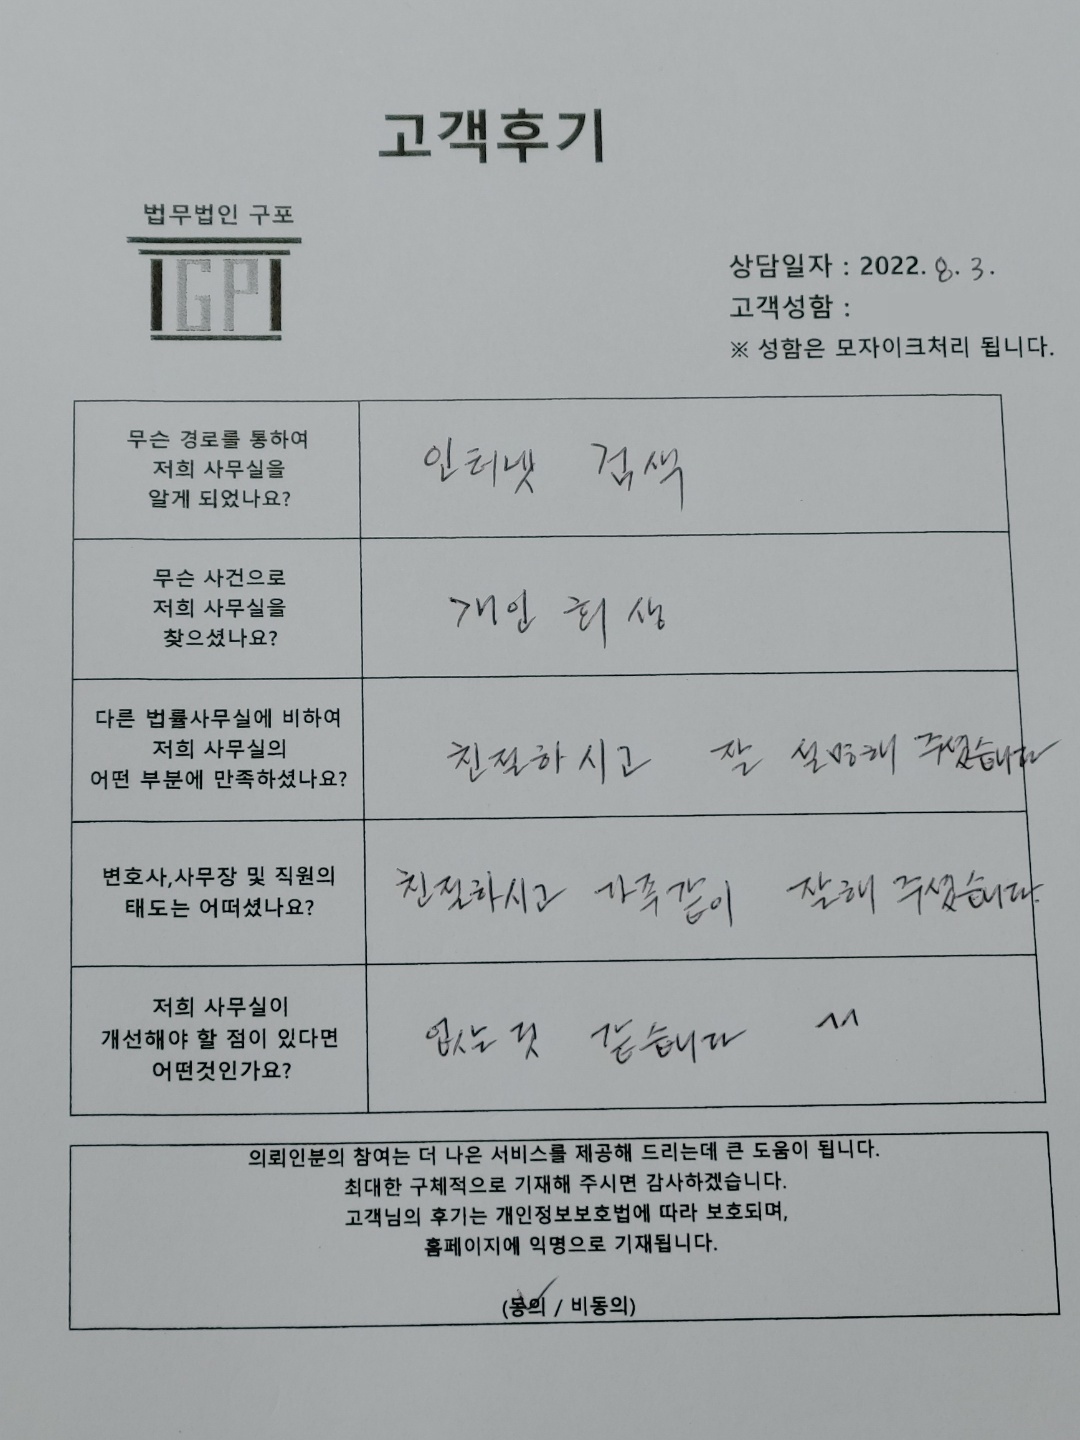 고객후기
법무법인 구포
GP
상담일자 : 2022. 8. 3.
고객성함 :
※ 성함은 모자이크처리 됩니다.
무슨 경로를 통하여
저희 사무실을
알게 되었나요?
인터넷 검색
무슨 사건으로
저희 사무실을
찾으셨나요?
개인 회생
다른 법률사무실에 비하여
저희 사무실의
어떤 부분에 만족하셨나요?
친절하시고 잘 설명해 주셨습니다
변호사,사무장 및 직원의
태도는 어떠셨나요?
친절하시고 가족같이 잘해 주셨습니다.
저희 사무실이
개선해야 할 점이 있다면
어떤것인가요?
없는 것 같습니다 ^^
의뢰인분의 참여는 더 나은 서비스를 제공해 드리는데 큰 도움이 됩니다.
최대한 구체적으로 기재해 주시면 감사하겠습니다.
고객님의 후기는 개인정보보호법에 따라 보호되며,
홈페이지에 익명으로 기재됩니다.
(동의 / 비동의)